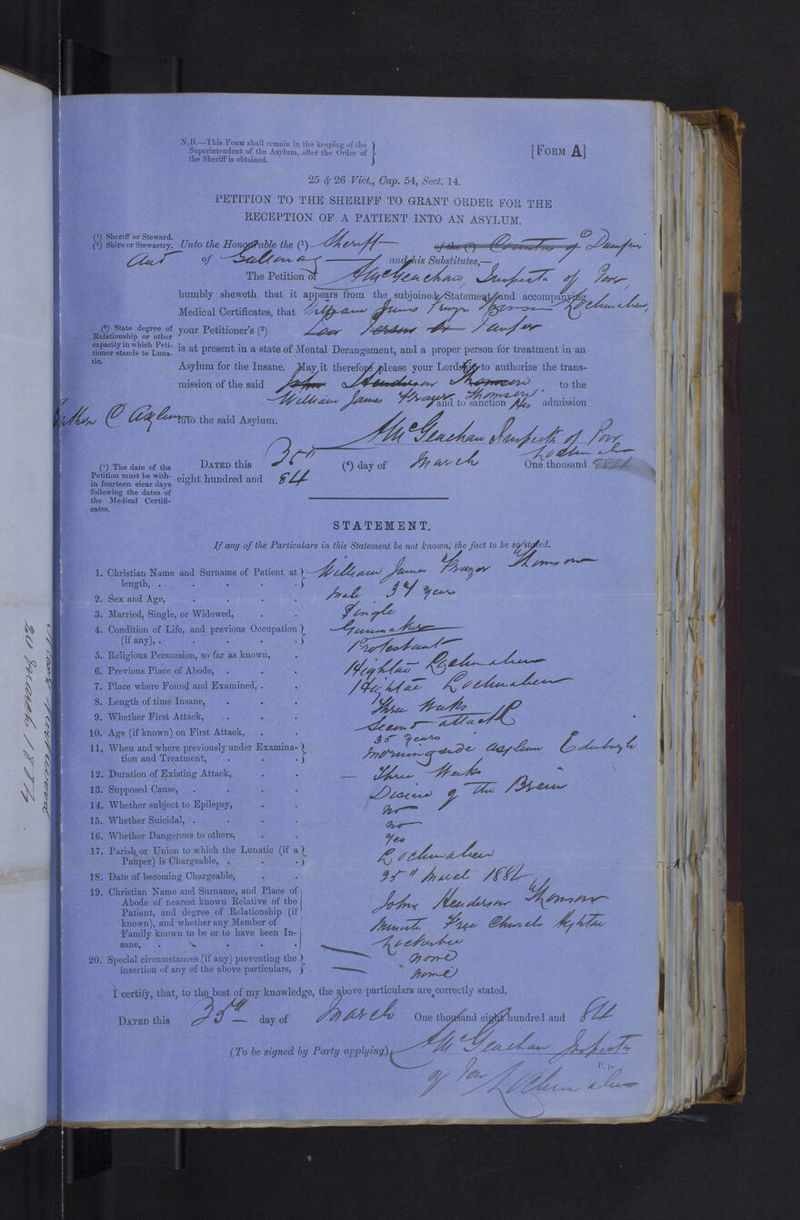 N.B.—This Form shall remain in the keeping of the
Superintendent of the Asylum, after the Order of
the Sheriff is obtained.
[Form A]
25 & 26 Vict., Cap. 54, Sect. 14.
PETITION TO THE SHERIFF TO GRANT ORDER FOR THE
RECEPTION OF A PATIENT INTO AN ASYLUM.
(1) Sheriff or Steward.
(2) Shire or Stewartry.
Unto the Honourable the (1) Sheriff of the (2) Counties of Dumfries
and of Galloway and his Substitutes,—
The Petition of McGeachan, Inspector of Poor
humbly sheweth that it appears from the subjoined Statement and accompanying
Medical Certificates, that William James Thomson Lochmaben,
(3) State degree of
Relationship or other
capacity in which Peti-
tioner stands to Luna-
tic.
your Petitioner's (3) Poor Person or Pauper
is at present in a state of Mental Derangement, and a proper person for treatment in an
Asylum for the Insane. May it therefore please your Lordship to authorize the trans-
mission of the said John Henderson Thomson to the
William James Thomson
and to sanction his admission
into the said Asylum.
McGeachan Inspector of Poor
Lochmaben
(4) The date of the
Petition must be with-
in fourteen clear days
following the dates of
the Medical Certifi-
cates.
Dated this 25th (4) day of March One thousand
eight hundred and 84
STATEMENT.
If any of the Particulars in this Statement be not known, the fact to be so stated.
1. Christian Name and Surname of Patient at length, . William James Thomson
2. Sex and Age, Male 34 years
3. Married, Single, or Widowed, Single
4. Condition of Life, and previous Occupation (if any), . Gunmaker
5. Religious Persuasion, so far as known, Protestant
6. Previous Place of Abode, . Hightae Lochmaben
7. Place where Found and Examined, . Hightae Lochmaben
8. Length of time Insane, Three Weeks
9. Whether First Attack, Second attack
10. Age (if known) on First Attack, 35 years
11. When and where previously under Examina-tion and Treatment, Morningside Asylum Edinburgh
12. Duration of Existing Attack, Three Weeks
13. Supposed Cause, Disease of the Brain
14. Whether subject to Epilepsy, no
15. Whether Suicidal, . no
16. Whether Dangerous to others, Yes
17. Parish or Union to which the Lunatic (if a Pauper) is Chargeable, . Lochmaben
18. Date of becoming Chargeable, 25th March 1884
19. Christian Name and Surname, and Place of
Abode of nearest known Relative of the
Patient, and degree of Relationship (if
known), and whether any Member of
Family known to be or to have been In-
sane,
John Henderson Thomson
Minister Free Church Hightae
Lockerbie
none
20. Special circumstances (if any) preventing the insertion of any of the above particulars, none
I certify, that, to the best of my knowledge, the above particulars are correctly stated.
Dated this 25th day of March One thousand eight hundred and 84
(To be signed by Party applying) McGeachan Inspector
of Poor Lochmaben
P. P.
20 March 1884